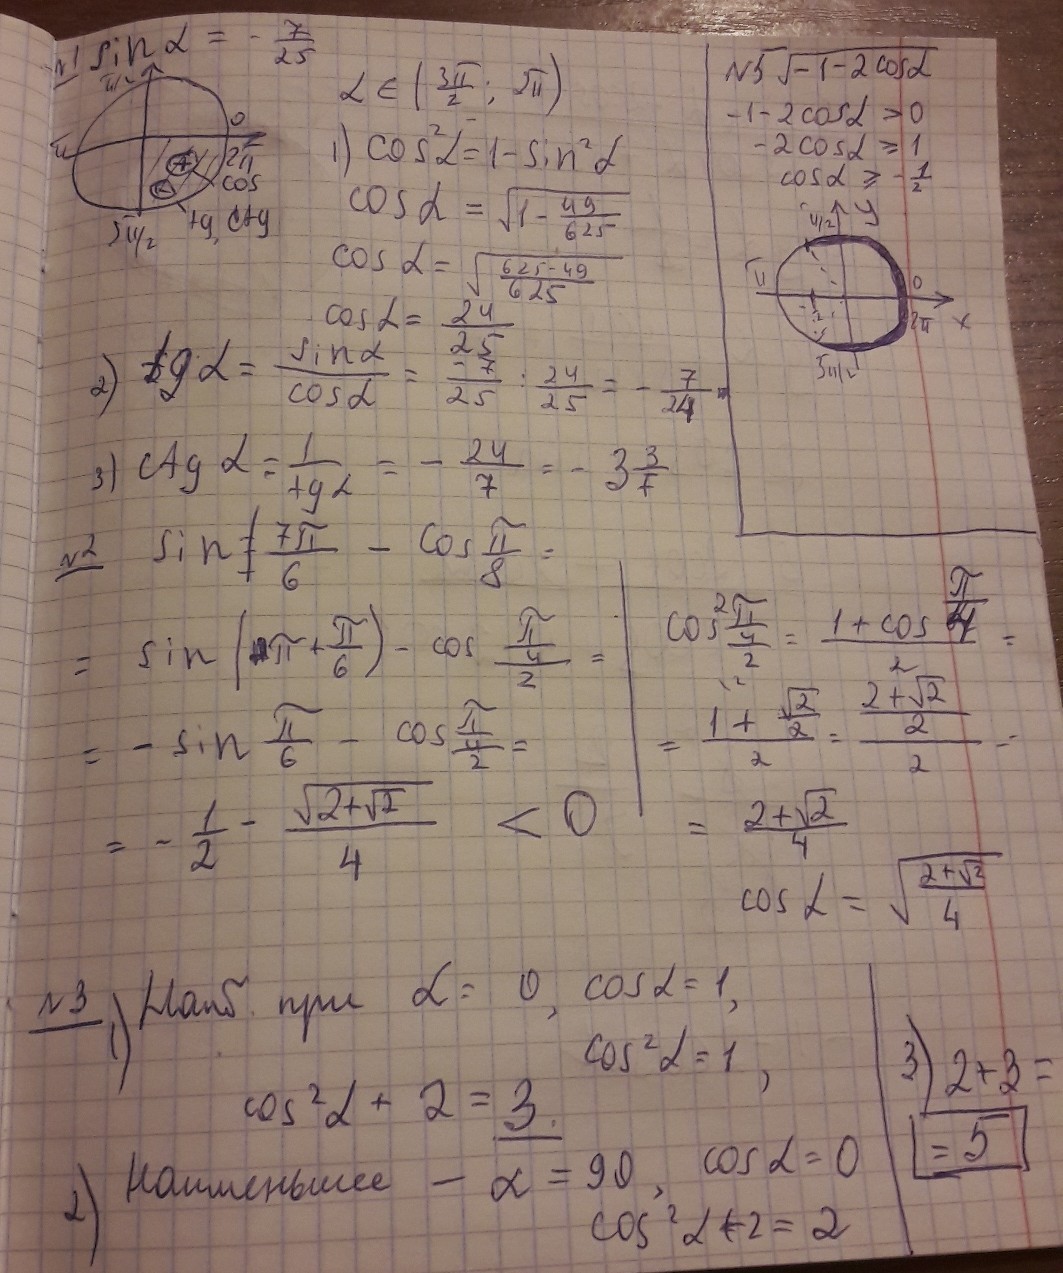 N1 sin α = - 7/25
α ∈ (3π/2; 2π)
π/2
0
π
2π
cos
tg, ctg
3π/2
1) cos²α = 1 - sin²α
cos α = √(1 - 49/625)
cos α = √((625-49)/625)
cos α = 24/25
2) tg α = sin α/cos α = -7/25 : 24/25 = - 7/24
3) ctg α = 1/tg α = - 24/7 = - 3 3/7
N5 √(-1-2cos α)
-1-2cos α ≥ 0
-2cos α ≥ 1
cos α ≥ -1/2
π/2 y
π
0
2π x
3π/2
N2 sin 7π/6 - cos π/8 =
= sin (π + π/6) - cos (π/4)/2 =
= - sin π/6 - cos (π/4)/2 =
= - 1/2 - √(2+√2)/4 < 0
cos² (π/4)/2 = (1 + cos π/4)/2 =
= (1 + √2/2)/2 = ((2+√2)/2)/2 =
= (2+√2)/4
cos α = √((2+√2)/4)
N3 1) Наиб. при α = 0, cos α = 1,
cos²α = 1,
cos²α + 2 = 3.
2) Наименьшее - α = 90, cos α = 0
cos²α + 2 = 2
3) 2+3 =
= 5